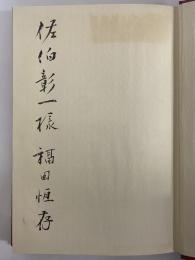 佐伯彰一様 福田恆存